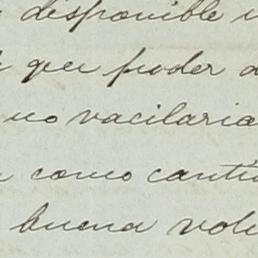 disponible
que poder
no vacilaria
como canti
buena volu